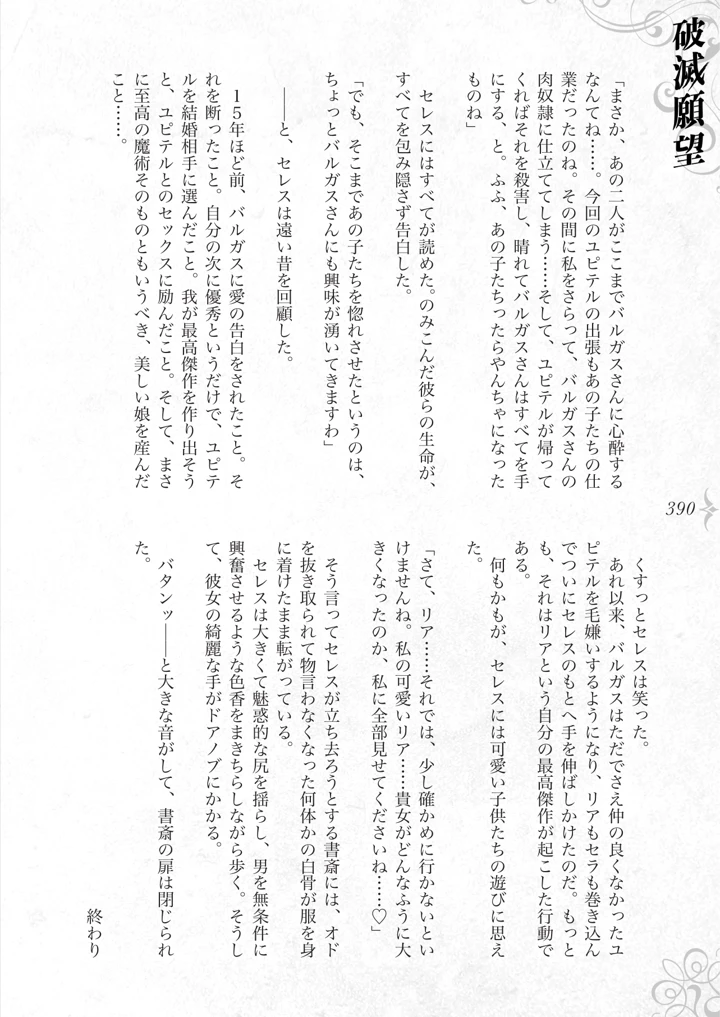 破滅願望
「まさか、あの二人がここまでバルガスさんに心酔する
なんてね……。今回のユピテルの出張もあの子たちの仕
業だったのね。その間に私をさらって、バルガスさんの
肉奴隷に仕立ててしまう……そして、ユピテルが帰って
くればそれを殺害し、晴れてバルガスさんはすべてを手
にする、と。ふふ、あの子たちったらやんちゃになった
ものね」
セレスにはすべてが読めた。のみこんだ彼らの生命が、
すべてを包み隠さず告白した。
「でも、そこまであの子たちを惚れさせたというのは、
ちょっとバルガスさんにも興味が湧いてきますわ」
――と、セレスは遠い昔を回顧した。
１５年ほど前、バルガスに愛の告白をされたこと。そ
れを断ったこと。自分の次に優秀というだけで、ユピテ
ルを結婚相手に選んだこと。我が最高傑作を作り出そう
と、ユピテルとのセックスに励んだこと。そして、まさ
に至高の魔術そのものともいうべき、美しい娘を産んだ
こと……。
くすっとセレスは笑った。
あれ以来、バルガスはただでさえ仲の良くなかったユ
ピテルを毛嫌いするようになり、リアもセラも巻き込ん
でついにセレスのもとへ手を伸ばしかけたのだ。もっと
も、それはリアという自分の最高傑作が起こした行動で
ある。
何もかもが、セレスには可愛い子供たちの遊びに思え
た。
「さて、リア……それでは、少し確かめに行かないとい
けませんね。私の可愛いリア……貴女がどんなふうに大
きくなったのか、私に全部見せてくださいね……♡」
そう言ってセレスが立ち去ろうとする書斎には、オド
を抜き取られて物言わなくなった何体かの白骨が服を身
に着けたまま転がっている。
セレスは大きくて魅惑的な尻を揺らし、男を無条件に
興奮させるような色香をまきちらしながら歩く。そうし
て、彼女の綺麗な手がドアノブにかかる。
バタンッ――と大きな音がして、書斎の扉は閉じられ
た。
終わり
390